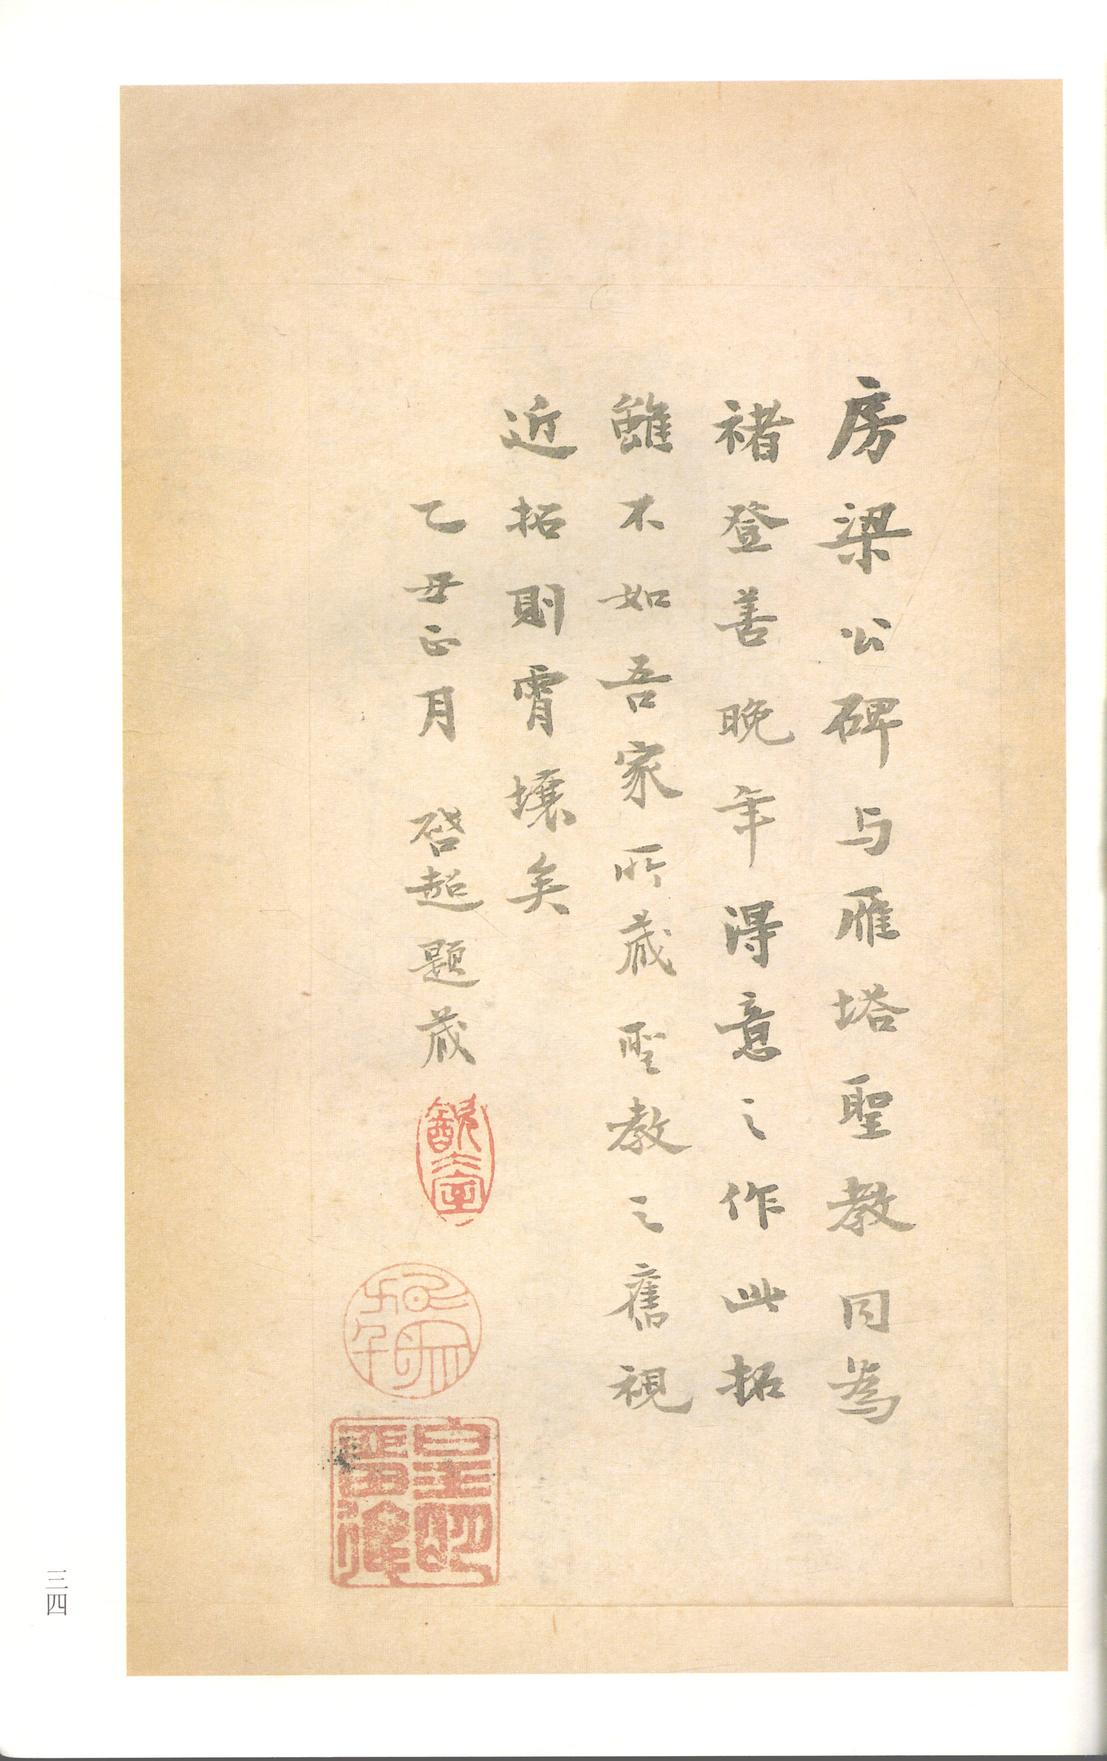 房梁公碑与雁塔聖教同為
褚登善晚年得意之作此拓
雖不如吾家所藏聖教之舊視
近拓則霄壤矣
乙丑正月　啓超題藏
三四